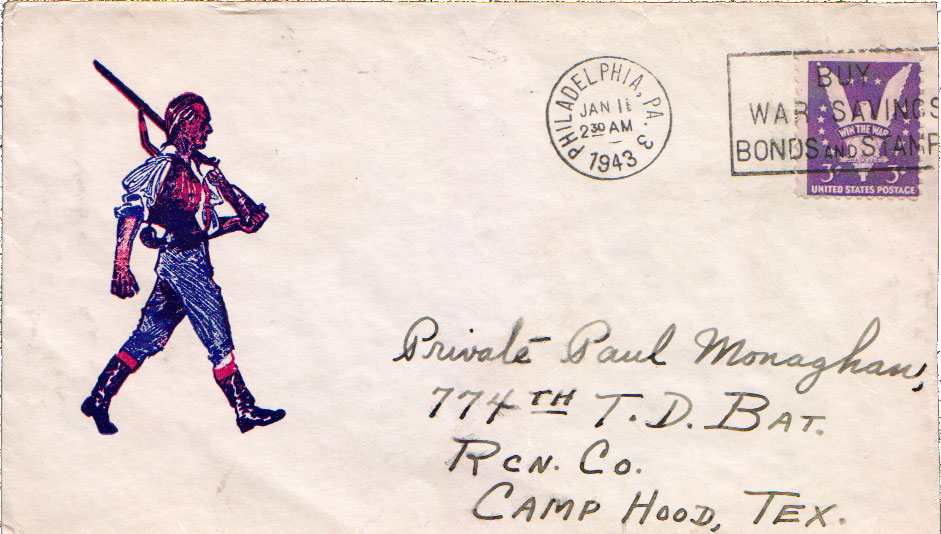 PHILADELPHIA, PA. 3
JAN 11
2 30 AM
1943
BUY
WAR SAVINGS
BONDS AND STAMP
WIN THE WAR
3¢ 3¢
UNITED STATES POSTAGE
Private Paul Monaghan,
774TH T. D. BAT.
RCN. CO.
CAMP HOOD, TEX.